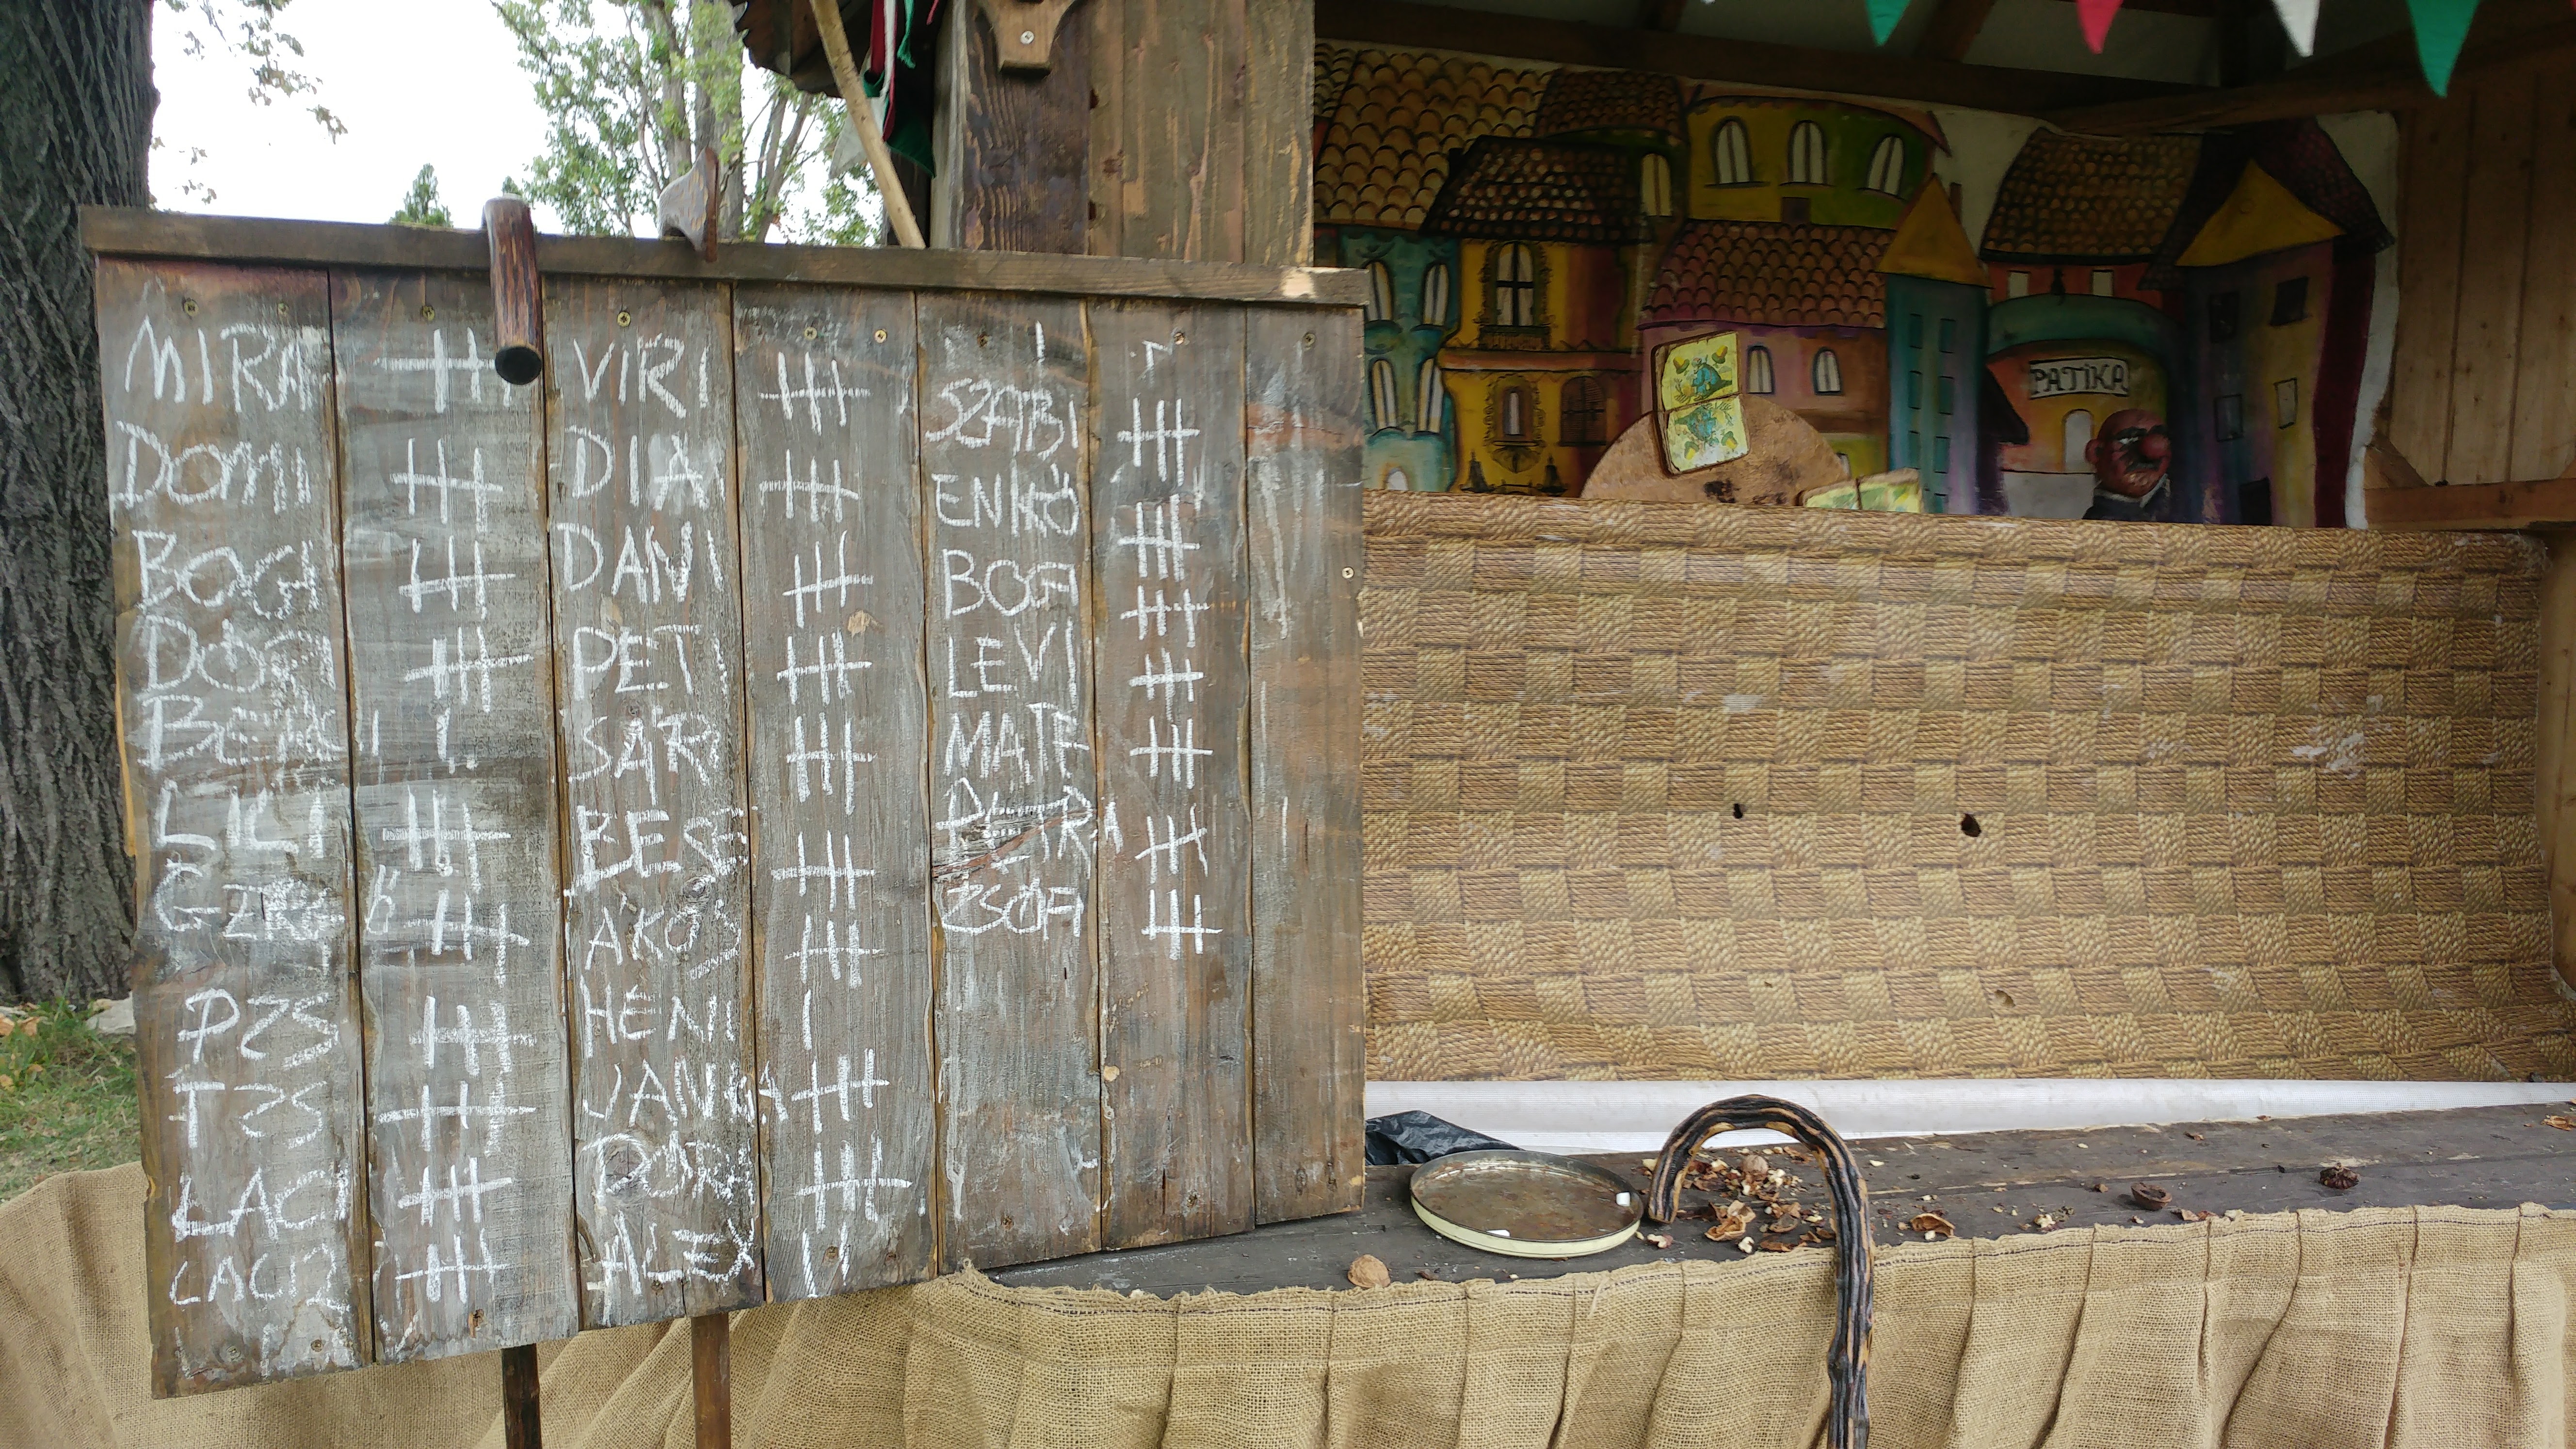 MIRA
DOMI
BOGI
DORI
LILI
PZS
TZS
LACI
LACI2
VIRI
DIA
DANI
PETI
SÁRI
BESE
ÁKOS
HENI
JANKA
BORI
ALEX
SZABI
ENIKŐ
BOGI
LEVI
MATE
PETRA
ZSÓFI
PATIKA